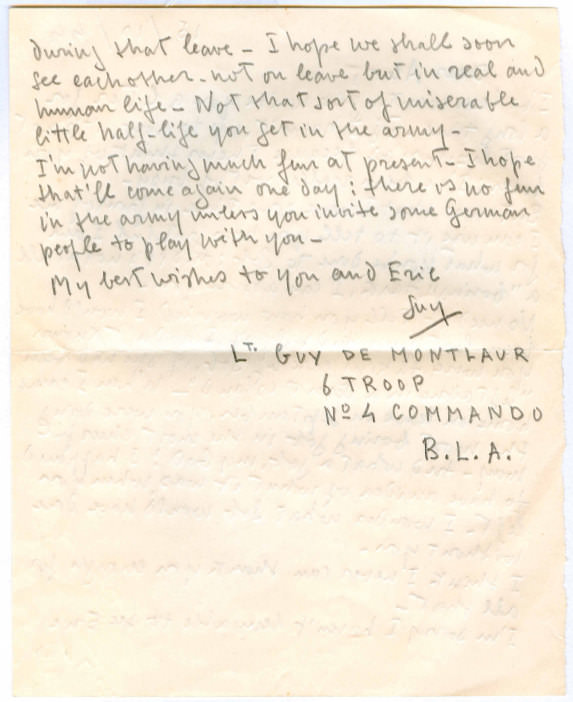 during that leave – I hope we shall soon
see eachother – not on leave but in real and
human life – Not that sort of miserable
little half-life you get in the army –
I'm not having much fun at present – I hope
that'll come again one day; there is no fun
in the army unless you invite some German
people to play with you –
My best wishes to you and Eric
Guy
LT. GUY DE MONTLAUR
6 TROOP
Nº 4 COMMANDO
B.L.A.